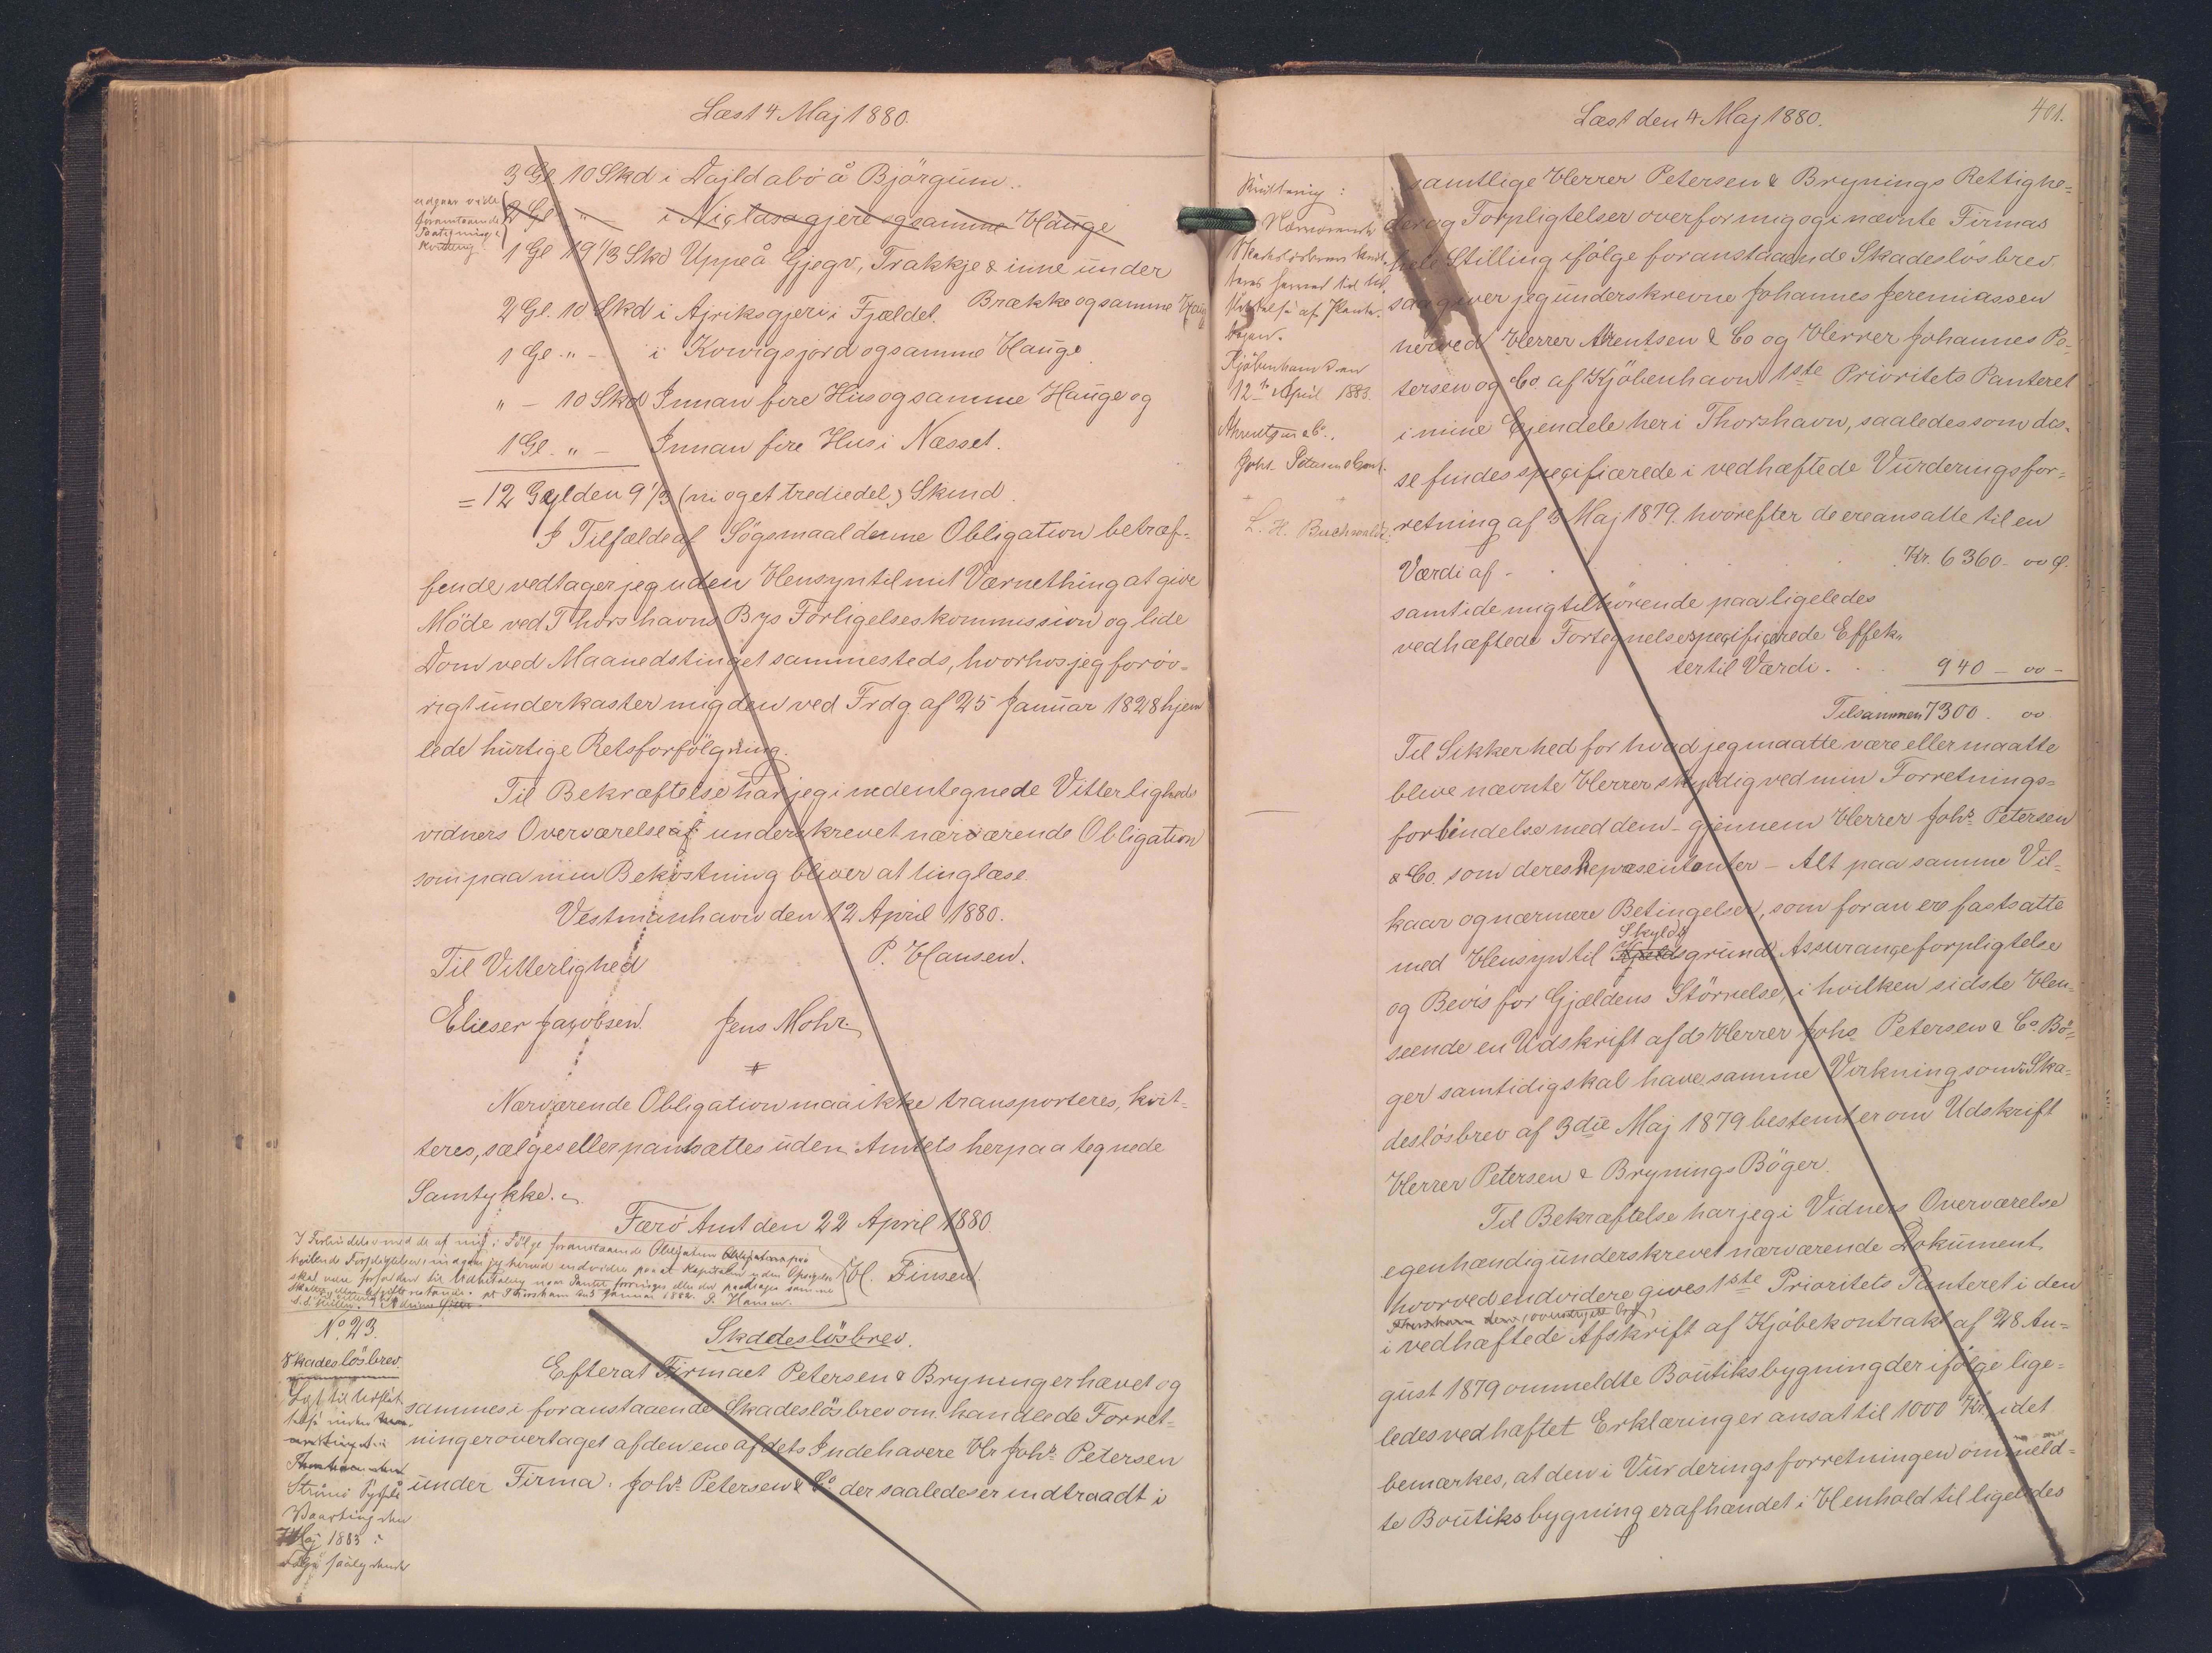 Læst 4 Maj 1880.
3 Gl 10 Skd i Dajldabö å Björgum.
udgaar ved
foranstaaende
Paategning
2 Gl " — i Niclasagjere og samme Hauge
1 Gl 19 1/3 Skd Uppeå Gjegv, Trakkje & inne under
Brække og samme Haug
2 Gl. 10 Skd i Ajriksgjeri i Fjældet.
1 Gl. " — i Kowigsjord og samme Hauge
" — 10 Skd Innan fire Hus og samme Hauge og
1 Gl. " — Innan fire Hus i Næsset.
= 12 Gylden 9 1/3 (ni og et trediedel) Skind.
I Tilfælde af Sögsmaal denne Obligation betræf-
fende vedtager jeg uden Hensyn til mit Værnething at give
Möde ved Thorshavns Bys Forligelseskommission og lide
Dom ved Maanedstinget sammesteds, hvorhos jeg foröv-
rigt underkaster mig den ved Frdg. af 25 Januar 1828 hjem
lede hurtige Retsforfölgning.
Til Bekræftelse har jeg i nedentegnede Vitterligheds
vidners Overværelse af underskrevet nærværende Obligation
som paa min Bekostning bliver at tinglæse.
Vestmanhavn den 12 April 1880.
Til Vitterlighed
P. Hansen.
Elieser Jacobsen. Jens Mohr.
Nærværende Obligation maa ikke transporteres, kvit-
teres, sælges eller pantsættes uden Amtets herpaa tegnede
Samtykke.
Færö Amt den 22 April 1880.
H. Finsen.
I Forbindelse med de af mig i Fölge foranstaaende Obligation
hvilende Forpligtelser indgaar jeg herved endvidere paa at Kapitalen uden Opsigelse
skal være forfalden til Udbetaling naar Pantet forringes eller
P. Hansen.
No. 23.
Skadeslösbrev.
Skadeslösbrev.
Efterat Firmaet Petersen & Bryning er hævet og
sammes i foranstaaende Skadeslösbrev omhandlede Forret-
ning er overtaget af den ene af dets Indehavere Hr. Johs. Petersen
under Firma. Johs. Petersen & Co. der saaledes er indtraadt i
Lyst til Udslet-
telse inden
Strömö Syssels
Vaarting den
Maj 1883
Læst den 4 Maj 1880.
401.
Kvittering:
Nærværende
Skadeslösbrev kvit-
teres herved til Ud-
slettelse af Pante-
bogen.
Kjöbenhavn den
12te April 1883.
Ahrentsen & Co.
Johs. Petersen & Comp.
L. H. Buchwaldt.
samtlige Herrer Petersen & Brynings Rettighe-
der og Forpligtelser overfor mig og i nævnte Firmas
hele Stilling ifölge foranstaaende Skadeslösbrev.
saa giver jeg underskrevne Johannes Jeremiassen
herved Herrer Arentsen & Co og Herrer Johannes Pe-
tersen og Co. af Kjöbenhavn 1ste Prioritets Panteret
i mine Ejendele her i Thorshavn, saaledes som dis-
se findes specificerede i vedhæftede Vurderingsfor-
retning af 3 Maj 1879. hvorefter de ere ansatte til en
Værdi af . . . . Kr. 6360 - 00 Ø.
samt i de mig tilhörende paa ligeledes
vedhæftede Fortegnelse specificerede Effek-
ter til Værdi . . . 940 — 00 -
Tilsammen 7300. 00
Til Sikkerhed for hvad jeg maatte være eller maatte
blive nævnte Herrer skyldig ved min Forretnings-
forbindelse med dem - gjennem Herrer Johs. Petersen
& Co. som deres Repræsentanter - Alt paa samme Vil-
kaar og nærmere Betingelser, som foran ere fastsatte
Skylds
med Hensyn til Gjældsgrund, Assuranceforpligtelse
og Bevis for Gjældens Störrelse, i hvilken sidste Hen-
seende en Udskrift af de Herrer Johs Petersen & Co. Bö-
ger samtidig skal have samme Virkning som i Ska-
deslösbrev af 3die Maj 1879 bestemt er om Udskrift
Herrer Petersen & Brynings Böger.
Til Bekræftelse har jeg i Vidners Overværelse
egenhændig underskrevet nærværende Dokument,
hvorved endvidere gives 1ste Prioritets Panteret i den
i vedhæftede Afskrift af Kjöbekontrakt af 28 Au-
gust 1879 ommeldte Boutiksbygning der ifölge lige-
ledes vedhæftet Erklæring er ansat til 1000 Kr., idet
bemærkes, at den i Vurderingsforretningen ommeld-
te Boutiksbygning er afhændet i Henhold til ligeledes